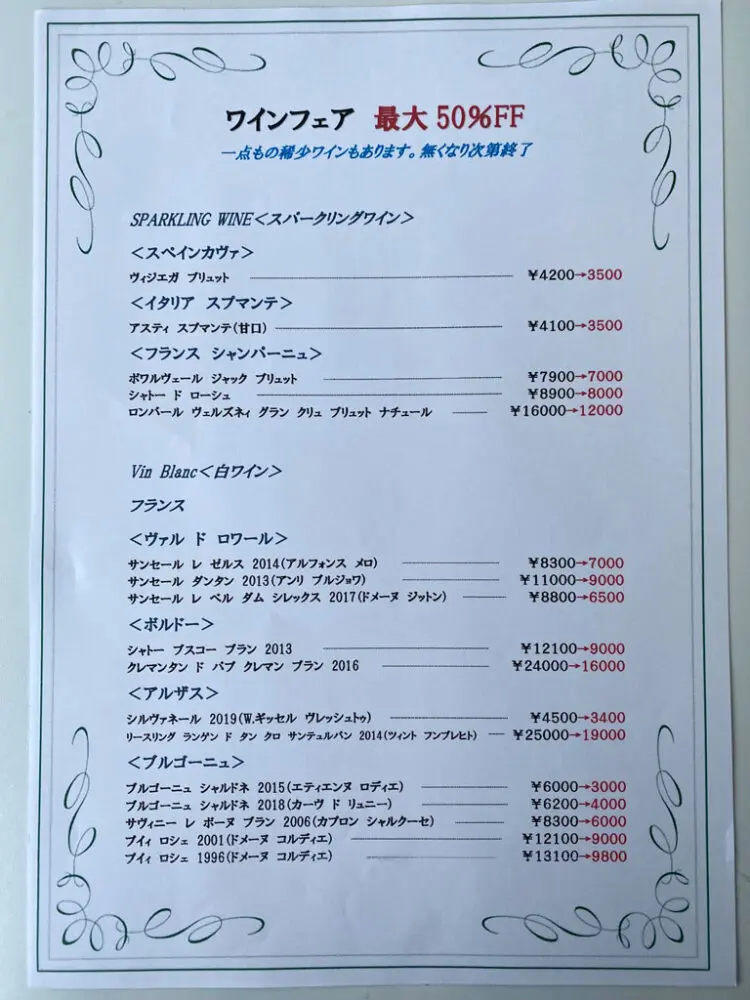 ワインフェア 最大 50%FF
一点もの稀少ワインもあります。無くなり次第終了
SPARKLING WINE＜スパークリングワイン＞
＜スペインカヴァ＞
ヴィジエガ ブリュット ¥4200→3500
＜イタリア スプマンテ＞
アスティ スプマンテ(甘口) ¥4100→3500
＜フランス シャンパーニュ＞
ボワルヴェール ジャック ブリュット ¥7900→7000
シャトー ド ローシュ ¥8900→8000
ロンバール ヴェルズネィ グラン クリュ ブリュット ナチュール ¥16000→12000
Vin Blanc＜白ワイン＞
フランス
＜ヴァル ド ロワール＞
サンセール レ ゼルス 2014(アルフォンス メロ) ¥8300→7000
サンセール ダンタン 2013(アンリ ブルジョワ) ¥11000→9000
サンセール レ ベル ダム シレックス 2017(ドメーヌ ジットン) ¥8800→6500
＜ボルドー＞
シャトー ブスコー ブラン 2013 ¥12100→9000
クレマンタン ド パプ クレマン ブラン 2016 ¥24000→16000
＜アルザス＞
シルヴァネール 2019(W.ギッセル ヴレッシュトゥ) ¥4500→3400
リースリング ランゲン ド タン クロ サンテュルバン 2014(ツィント フンブレヒト) ¥25000→19000
＜ブルゴーニュ＞
ブルゴーニュ シャルドネ 2015(エティエンヌ ロディエ) ¥6000→3000
ブルゴーニュ シャルドネ 2018(カーヴ ド リュニー) ¥6200→4000
サヴィニー レ ボーヌ ブラン 2006(カプロン シャルクーセ) ¥8300→6000
プイィ ロシェ 2001(ドメーヌ コルディエ) ¥12100→9000
プイィ ロシェ 1996(ドメーヌ コルディエ) ¥13100→9800